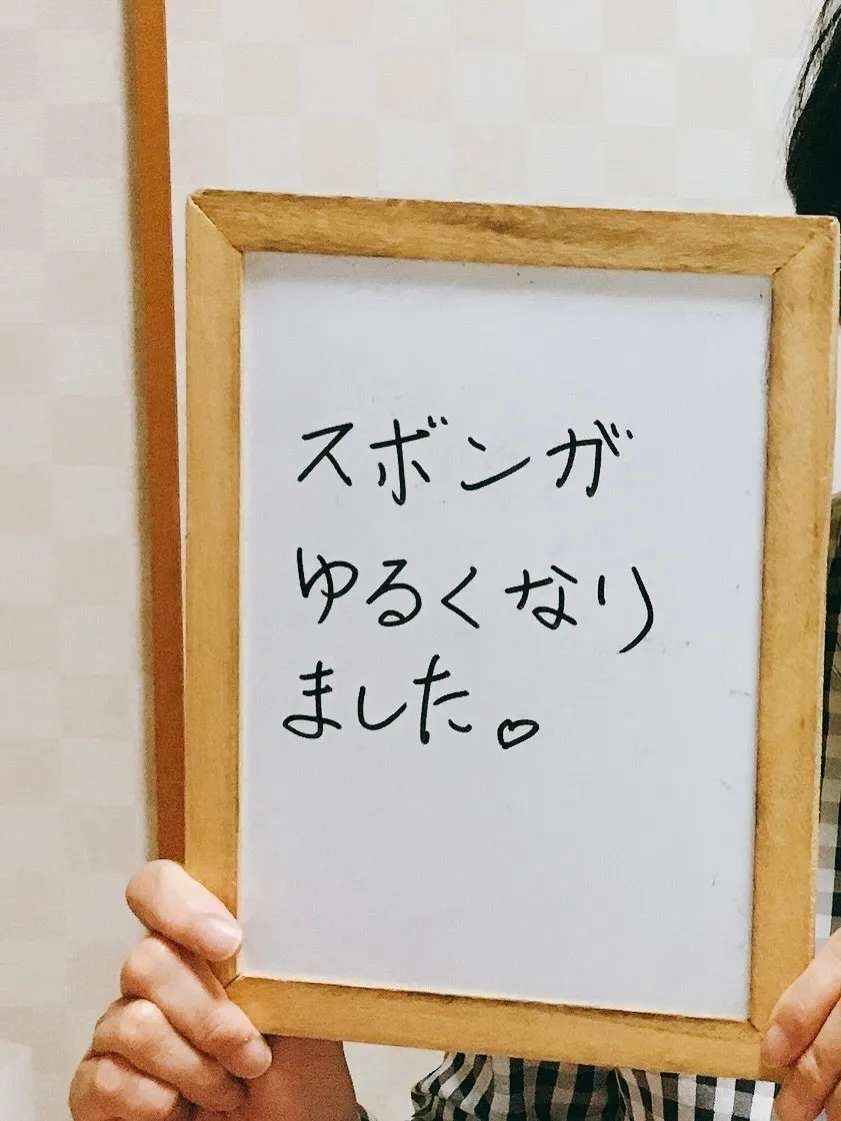 スボンが
ゆるくなり
ました。♡